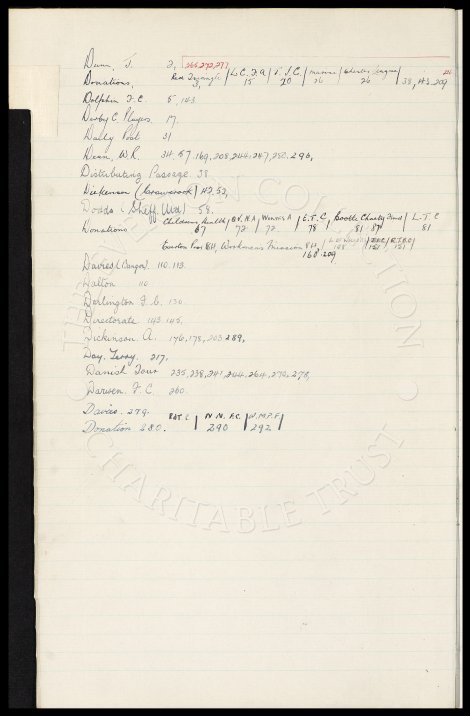 Dunn, J. 2, 265, 272, 277
Donations, Red Triangle 3, / L.C.F.A 15 / T.J.C. 20 / masons 26 / Charles 26 / 38, 143, 209
Dolphin F.C. 5, 143
Derby C Players 17.
Daily Post 31
Dean, W.R. 34. 57. 169, 208, 244, 247, 252, 296,
Disturbing Passage 38
Dickenson ( ) 42, 53,
Dodds (Sheff. Utd) 58.
Donations Childrens 67 / B.V. H.A 72 / Women's A 72 / E.S.C, 78 / Bootle Charity Fund 81 87 / L.T.C 81
84, Workmans Mission 84, / 168. 209 / 151 / 151 /
Davies (Bangor) 110. 113.
Dalton 110
Darlington F.C. 130.
Directorate 143. 145.
Dickinson A. 176, 178, 203 289,
Day. 217.
Danish Tour 235, 238, 241, 244, 264, 270, 278,
Darwen. F.C. 260.
Davies. 279.
Donation 280. / N.N. F.C. 290 / N.M.P.F 292 /
THE EVERTON COLLECTION
CHARITABLE TRUST